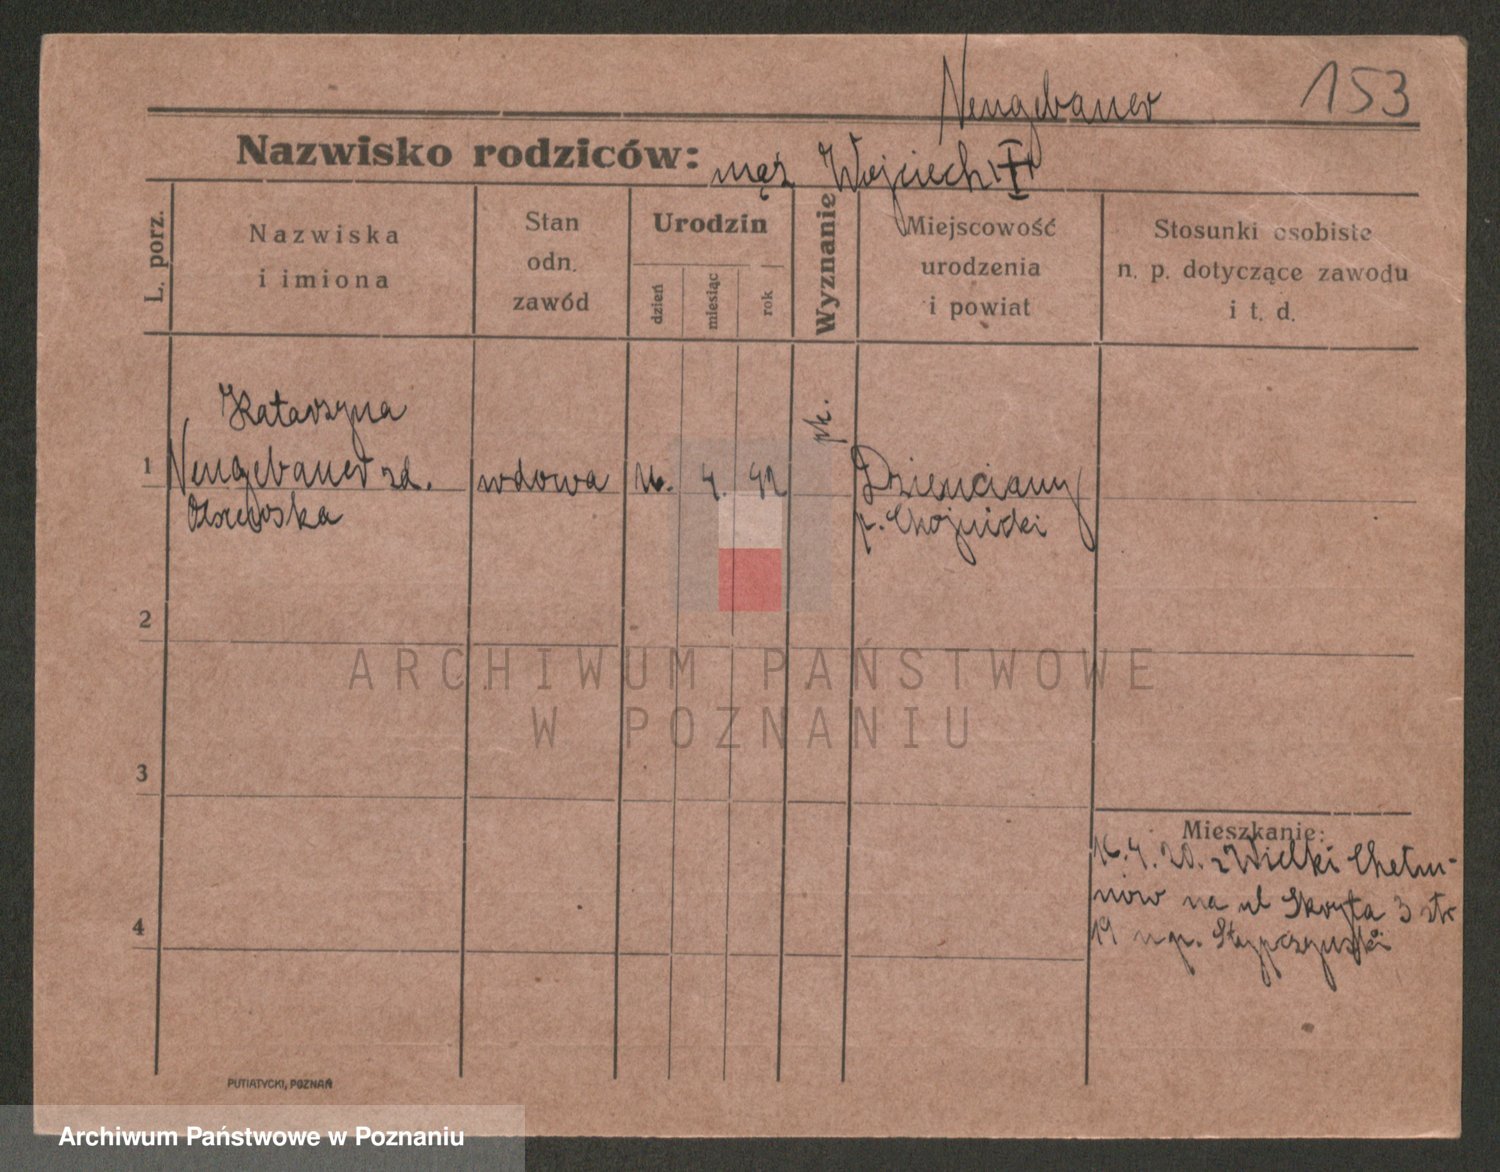 Neugebauer 153
Nazwisko rodziców: mąż Wojciech
L. porz.
Nazwiska
i imiona
Stan
odn.
zawód
Urodzin
dzień
miesiąc
rok
Wyznanie
Miejscowość
urodzenia
i powiat
Stosunki osobiste
n. p. dotyczące zawodu
i t. d.
Katarzyna
1 Neugebauer zd. wdowa 16. 4. 42
Olszewska
Dzienciany
p. Chojnicki
2
ARCHIWUM PAŃSTWOWE
W POZNANIU
3
Mieszkanie:
16. 4. 20. z Wielki Chełm-
4
19 Stypczyński
PUTIATYCKI, POZNAŃ
Archiwum Państwowe w Poznaniu